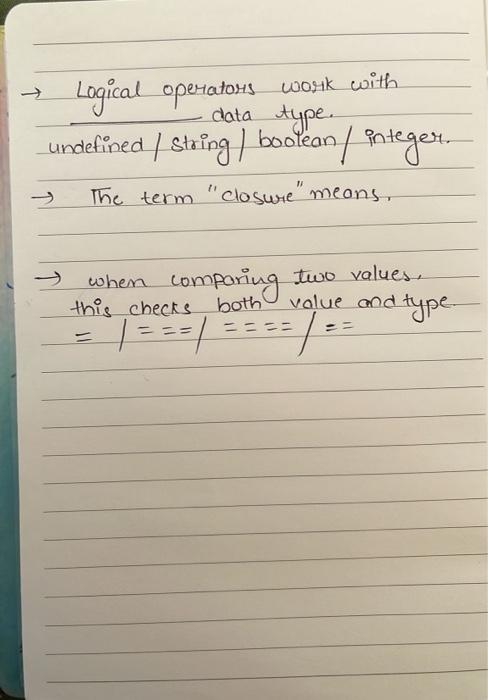 → Logical operators work with
________ data type.
undefined / string / boolean / integer.
→ The term "closure" means.
→ when comparing two values,
this checks both value and type.
= / === / ==== / ==